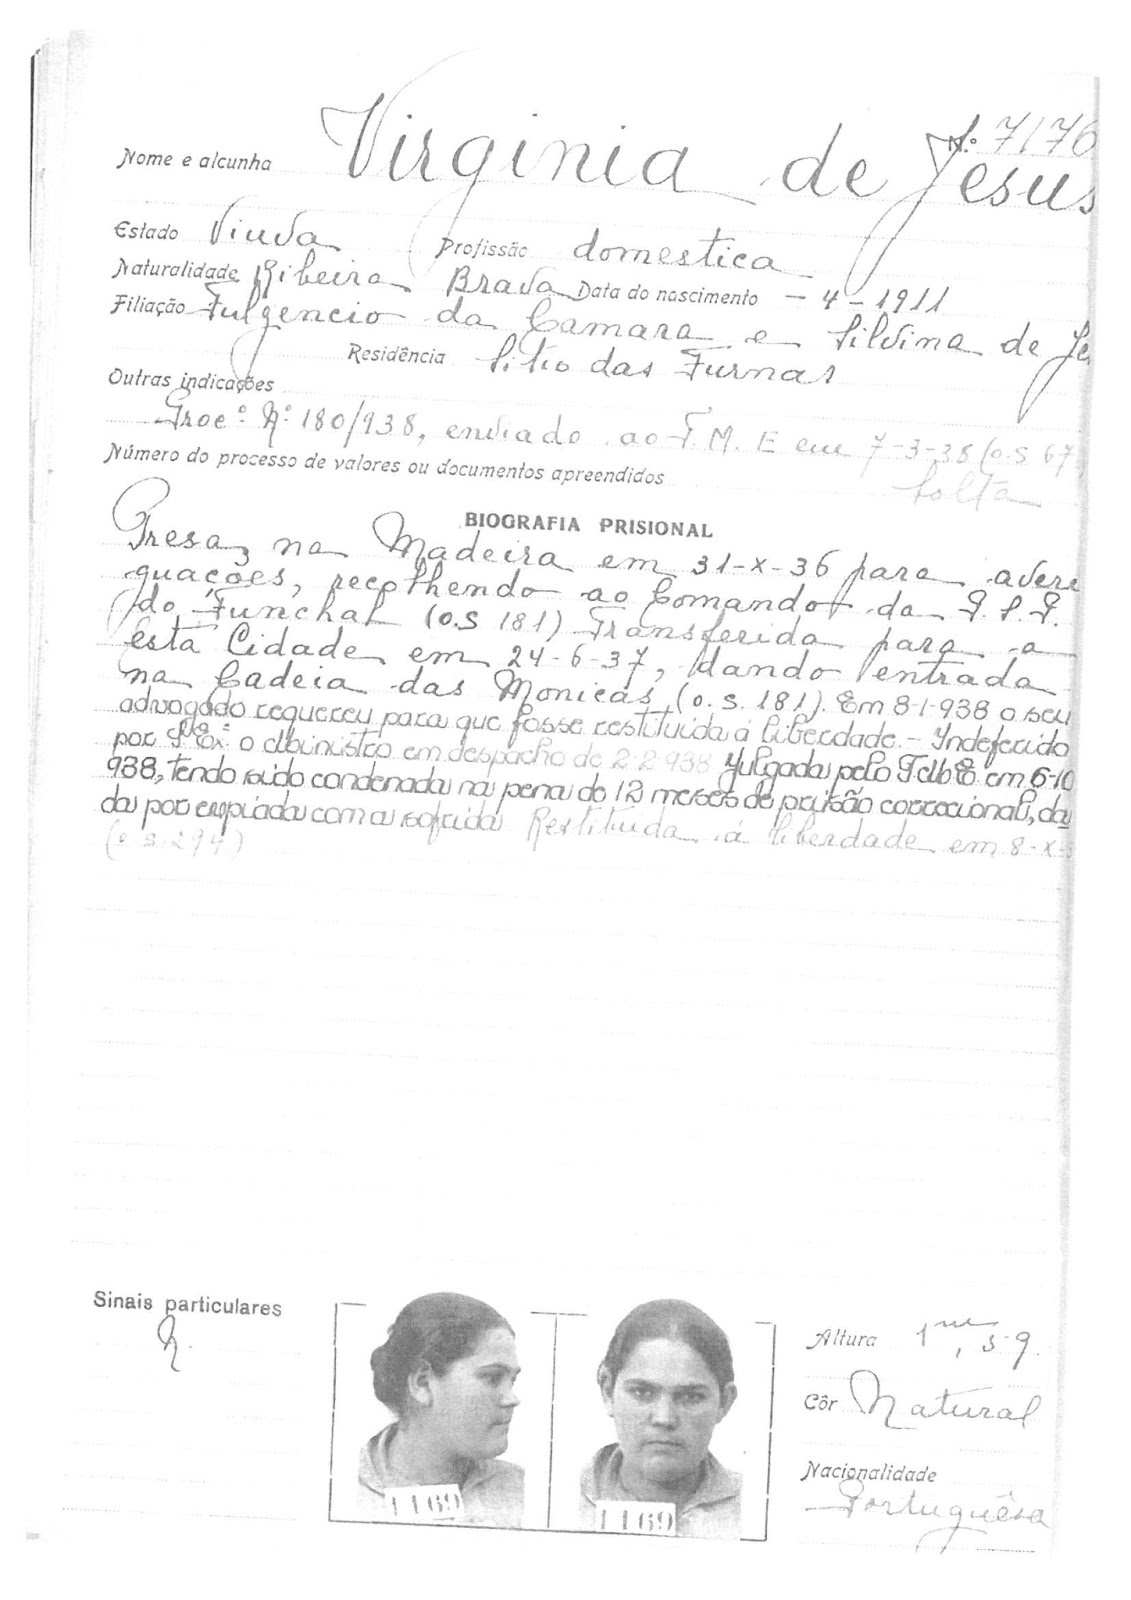 N.º 7176
Nome e alcunha Virginia de Jesus
Estado Viuva Profissão domestica
Naturalidade Ribeira Brava Data do nascimento - 4 - 1911
Filiação Fulgencio da Camara e Silvina de Je
Residência Sitio das Furnas
Outras indicações
Proc.º N.º 180/938, enviado ao T. M. E em 7-3-38 (O.S 67
Número do processo de valores ou documentos apreendidos
Solta
BIOGRAFIA PRISIONAL
Presa, na Madeira em 31-X-36 para averi
guações, recolhendo ao Comando da P. S. P.
do Funchal (O.S 181) Transferida para a
esta Cidade em 24-6-37, dando entrada
na Cadeia das Monicas (O.S. 181). Em 8-1-938 o seu
advogado requereu para que fosse restituida á liberdade. - Indeferido
por S. Exª. o Ministro em despacho de 2-2-938 Julgada pelo T.M.E. em 6-10
938, tendo sido condenada na pena de 12 meses de prisão correcional, da
da por expiada com a sofrida Restituida á liberdade em 8-X-
(O.S. 294)
Sinais particulares
N.
1169
1169
Altura 1m,59.
Côr Natural
Nacionalidade
Portuguêsa